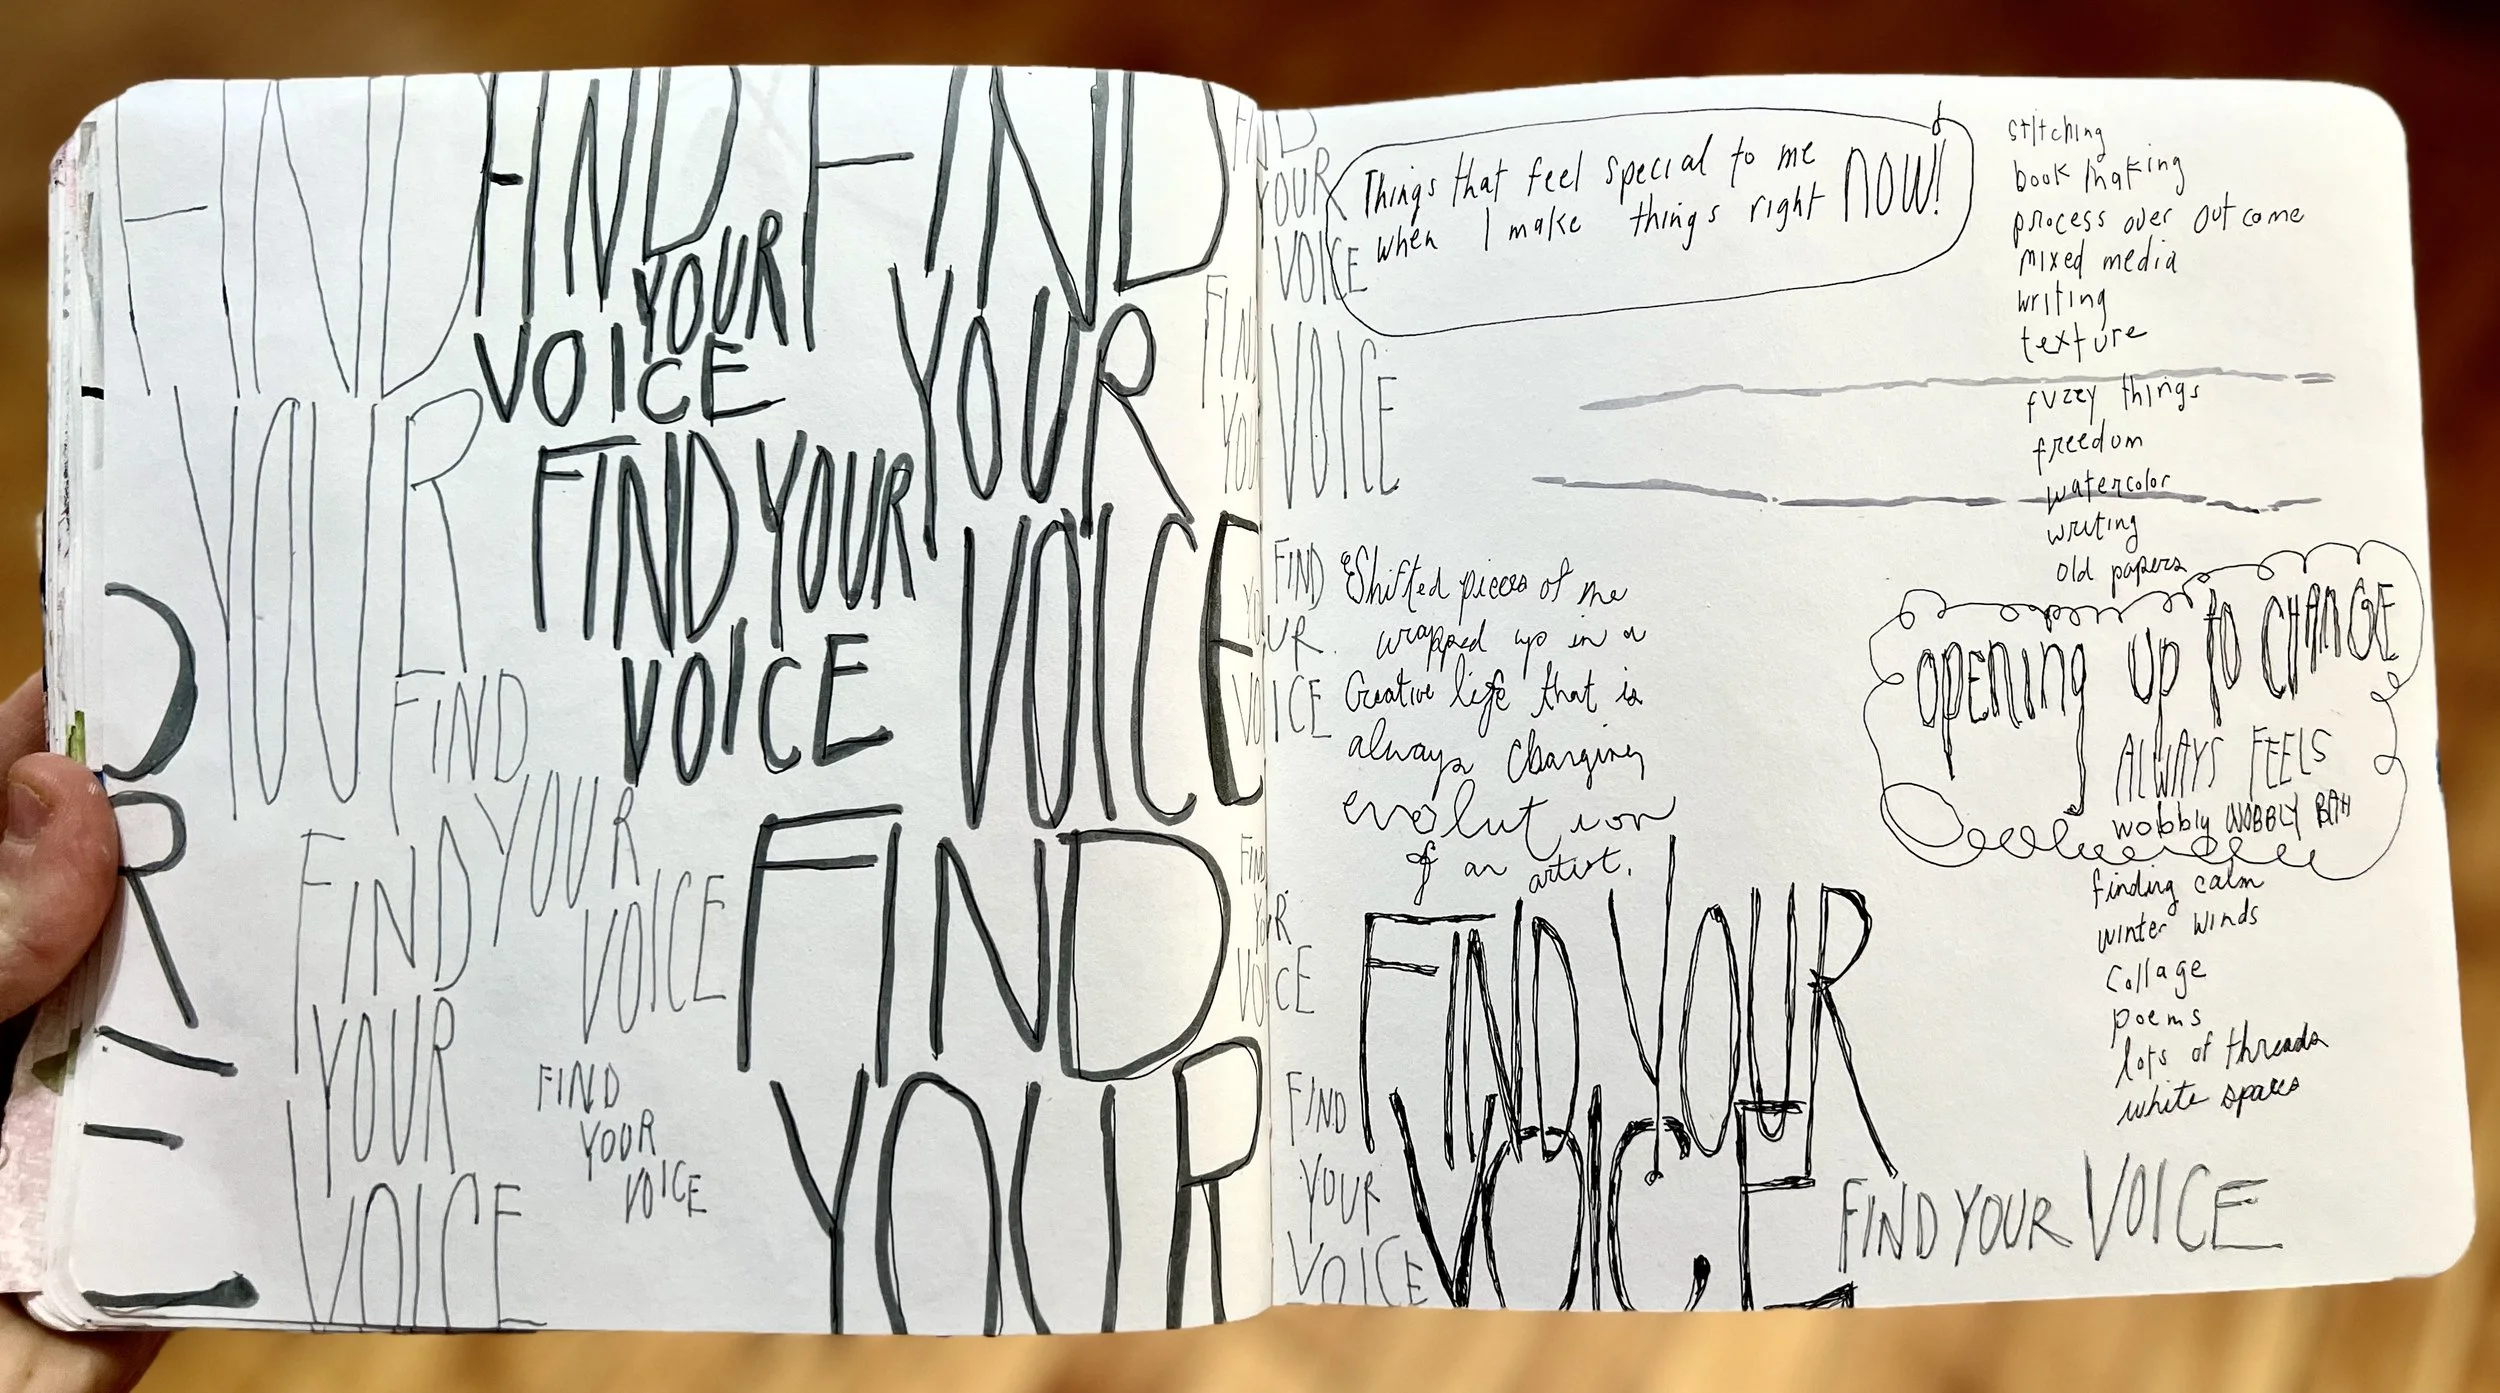 FIND
YOUR
FIND
YOUR
VOICE
FIND
YOUR
VOICE
FIND YOUR
VOICE
FIND
YOUR
VOICE
FIND
YOUR
VOICE
FIND
YOUR
VOICE
FIND
YOUR
FIND
YOUR
VOICE
FIND
YOUR
VOICE
VOICE
FIND
YOUR
VOICE
FIND
YOUR
VOICE
FIND
YOUR
VOICE
Things that feel special to me
when I make things right NOW!
Shifted pieces of me
wrapped up in a
Creative life that is
always changing
evolution
of an artist.
FIND YOUR
VOICE
FIND YOUR VOICE
stitching
book making
process over outcome
mixed media
writing
texture
fuzzy things
freedom
watercolor
writing
old papers
OPENING UP TO CHANGE
ALWAYS FEELS
wobbly WOBBLY BAH
finding calm
winter winds
collage
poems
lots of threads
white spaces